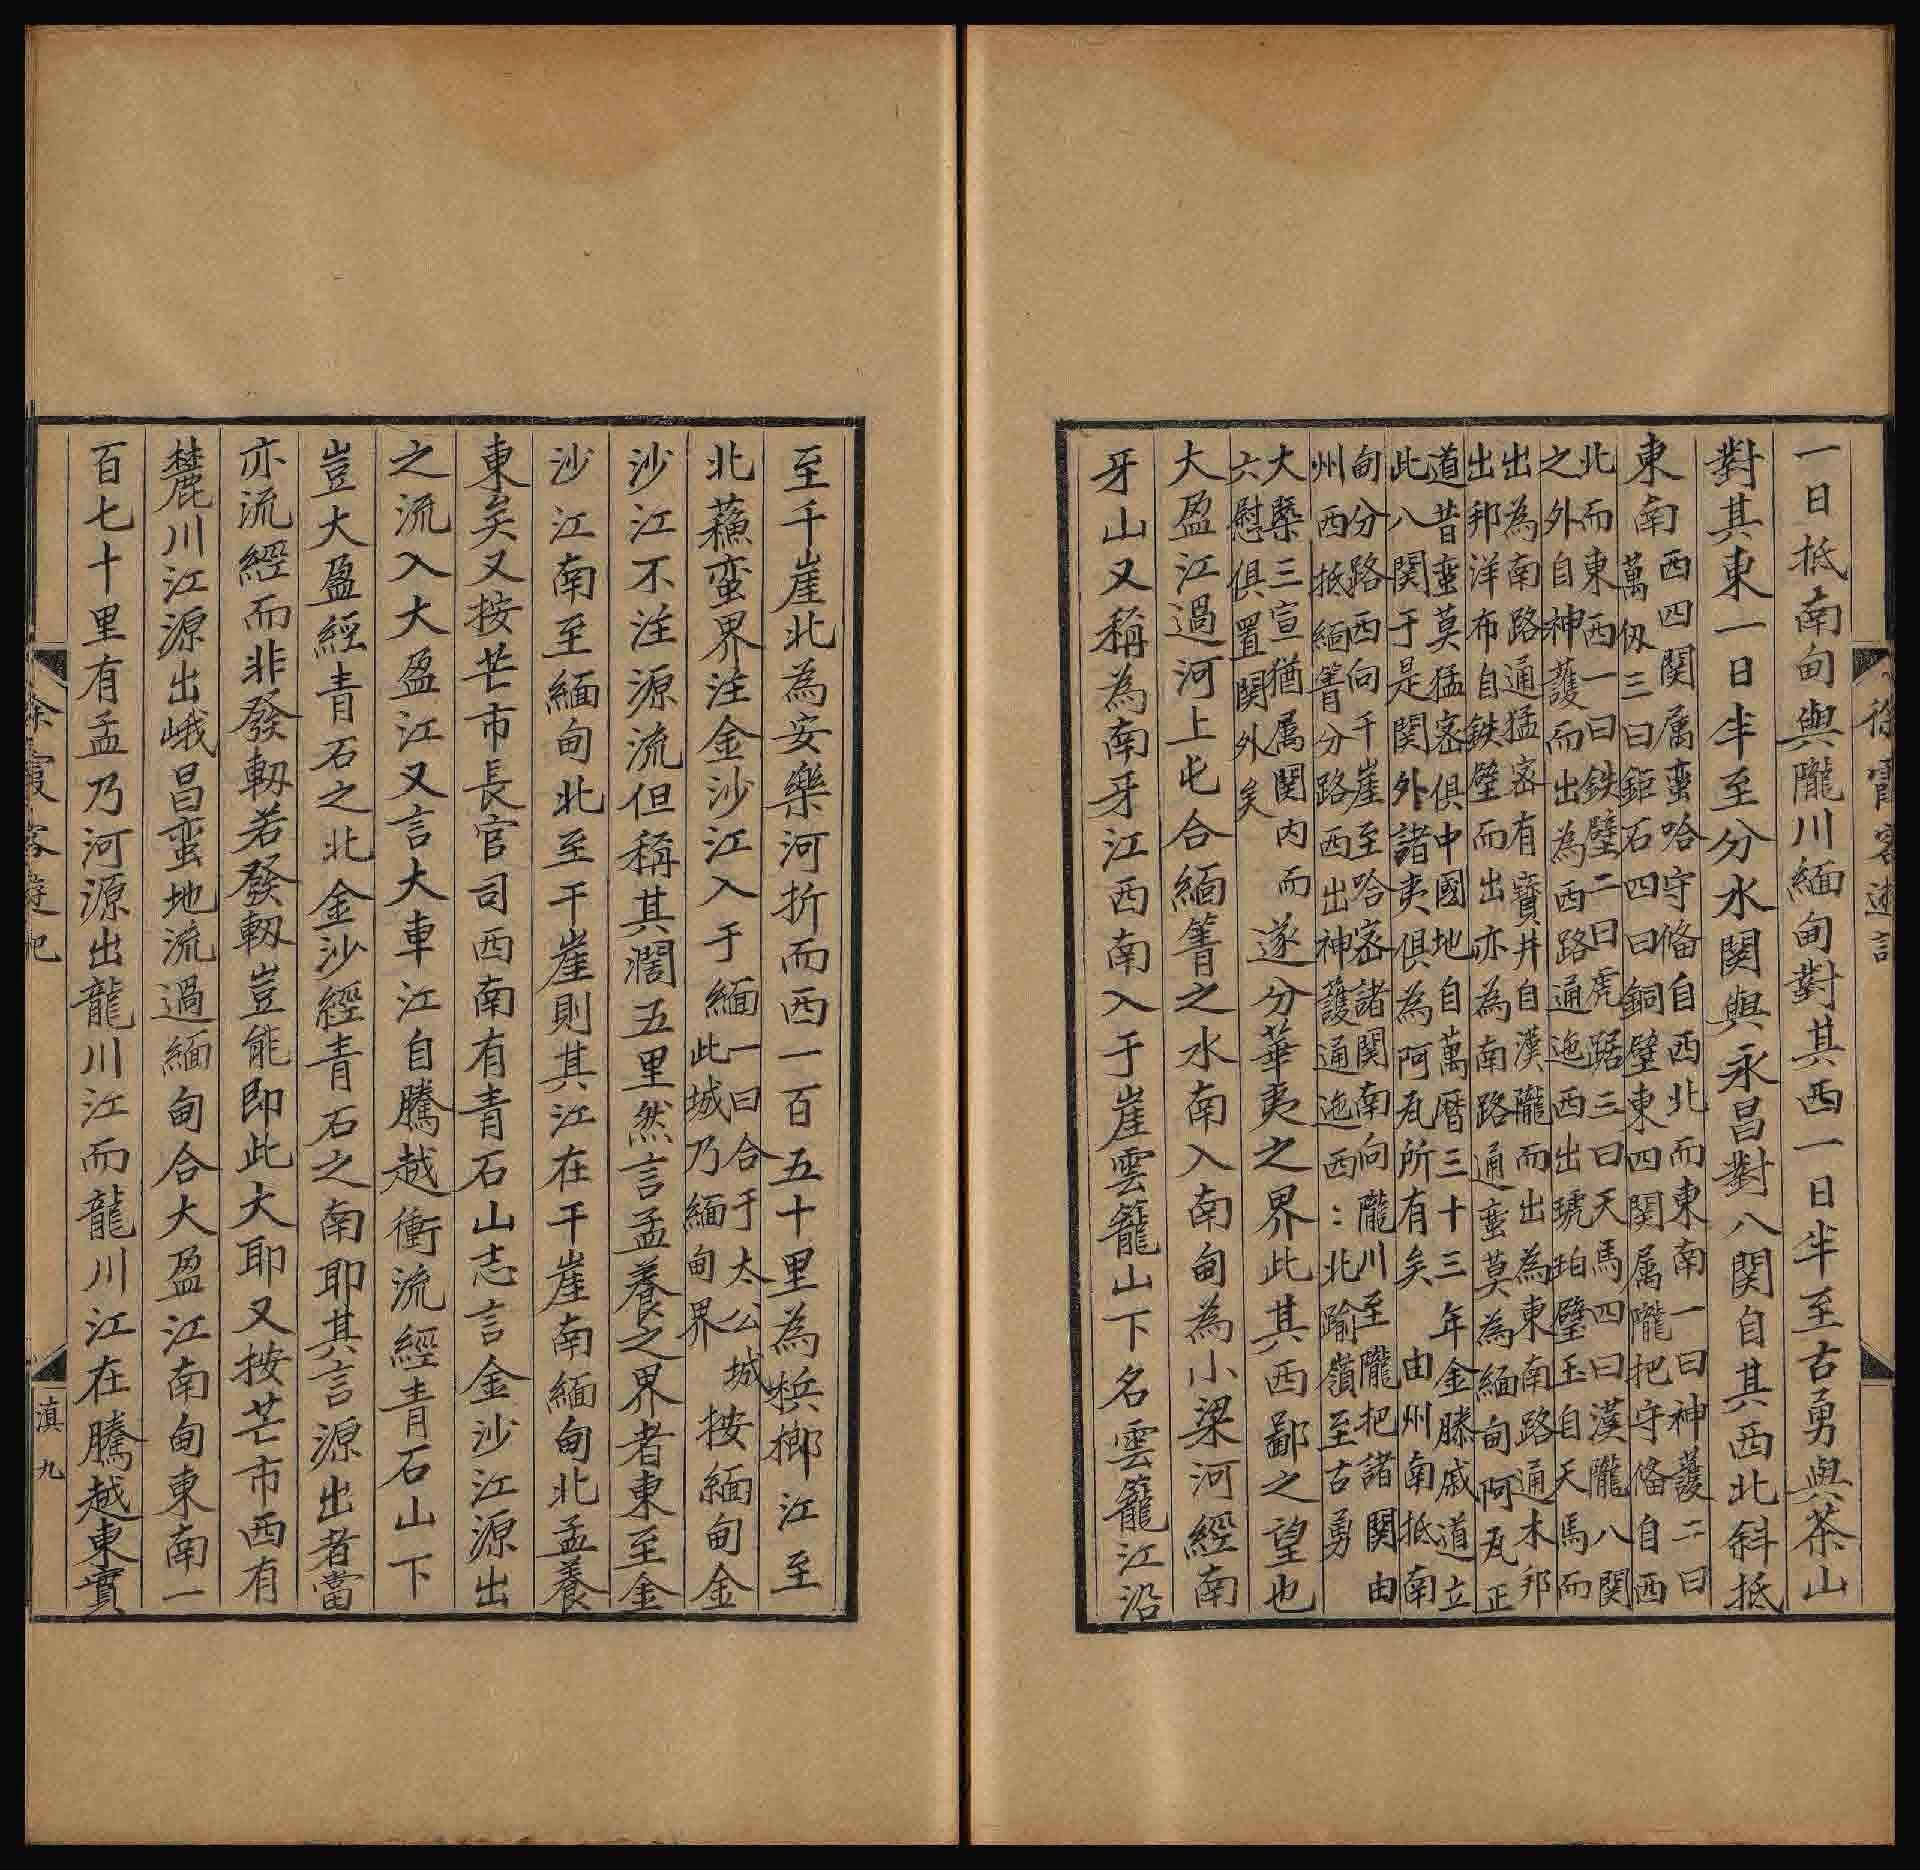 徐霞客遊記
一日抵南甸與隴川緬甸對其西一日半至古勇與茶山
對其東一日半至分水関與永昌對八関自其西北斜抵
東南西四関属蛮哈守俻自西北而東南一曰神護二曰
萬仭三曰鉅石四曰銅壁東四関属隴把守俻自西
北而東西一曰鉄壁二曰虎踞三曰天馬四曰漢隴八関
之外自神護而出為西路通迤西出琥珀壁玉自天馬而
出為南路通猛密有寳井自漢隴而出為東南路通木邦
出邦洋布自鉄壁而出亦為南路通蛮莫為緬甸阿瓦正
道昔蛮莫猛密俱中國地自萬曆三十三年金滕戚道立
此八関于是関外諸夷俱為阿瓦所有矣由州南抵南
甸分路西向千崖至哈密諸関南向隴川至隴把諸関由
州西抵緬箐分路西出神護通迤西:北踰嶺至古勇
大槩三宣猶属関内而
六慰俱置関外矣遂分華夷之界此其西鄙之望也
大盈江過河上屯合緬箐之水南入南甸為小梁河經南
牙山又稱為南牙江西南入于崖雲籠山下名雲籠江沿
至千崖北為安樂河折而西一百五十里為梹榔江至
北蘓蛮界注金沙江入于緬一曰合于太公城
此城乃緬甸界按緬甸金
沙江不注源流但稱其濶五里然言孟養之界者東至金
沙江南至緬甸北至干崖則其江在干崖南緬甸北孟養
東矣又按芒市長官司西南有青石山志言金沙江源出
之流入大盈江又言大車江自騰越衝流經青石山下
豈大盈經青石之北金沙經青石之南耶其言源出者當
亦流經而非發軔若發軔豈能即此大耶又按芒市西有
麓川江源出峨昌蛮地流過緬甸合大盈江南甸東南一
百七十里有孟乃河源出龍川江而龍川江在騰越東實
徐霞客遊記
滇九